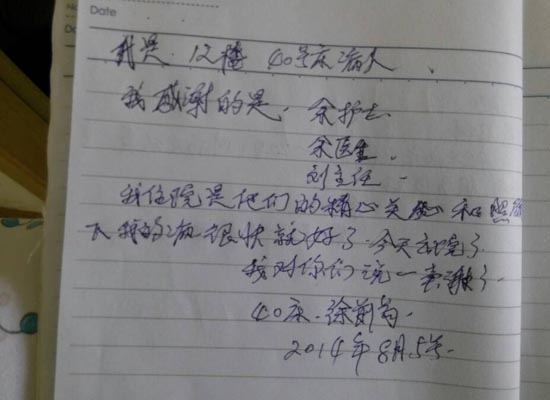 Date
我是.12楼 40号床病人.
我感谢的是.余护士
余医生.
刘主任.
我住院是他们的精心关心和照顾
下我的病很快就好了.今天出院了.
我对你们说一声谢了.
40床.徐
2014年8月5号.